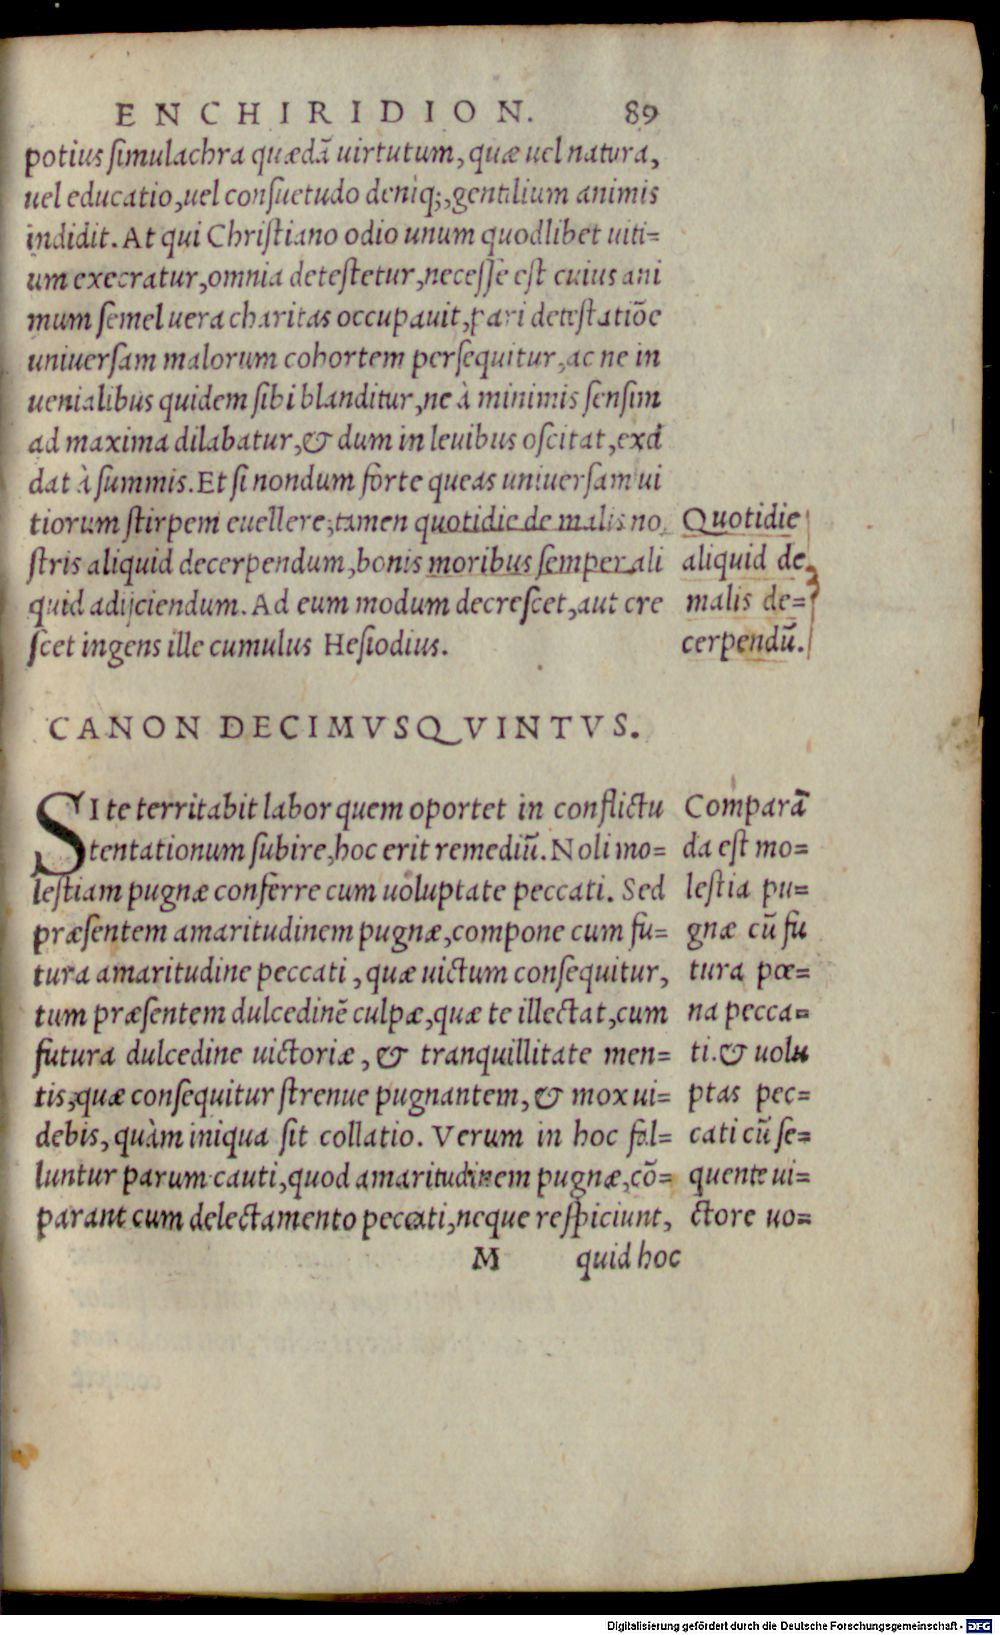 ENCHIRIDION. 89
potius simulachra quædã uirtutum, quæ uel natura,
uel educatio, uel consuetudo deniq;, gentilium animis
indidit. At qui Christiano odio unum quodlibet uiti=
um execratur, omnia detestetur, necesse est cuius ani
mum semel uera charitas occupauit, pari detestatiõe
uniuersam malorum cohortem persequitur, ac ne in
uenialibus quidem sibi blanditur, ne à minimis sensim
ad maxima dilabatur, & dum in leuibus oscitat, exci
dat à summis. Et si nondum forte queas uniuersam ui
tiorum stirpem euellere, tamen quotidie de malis no
stris aliquid decerpendum, bonis moribus semper ali
quid adijciendum. Ad eum modum decrescet, aut cre
scet ingens ille cumulus Hesiodius.
Quotidie
aliquid de
malis de=
cerpendũ.
CANON DECIMVSQVINTVS.
SI te territabit labor quem oportet in conflictu
tentationum subire, hoc erit remediũ. Noli mo=
lestiam pugnæ conferre cum uoluptate peccati. Sed
præsentem amaritudinem pugnæ, compone cum fu=
tura amaritudine peccati, quæ uictum consequitur,
tum præsentem dulcedinẽ culpæ, quæ te illectat, cum
futura dulcedine uictoriæ, & tranquillitate men=
tis, quæ consequitur strenue pugnantem, & mox ui=
debis, quàm iniqua sit collatio. Verum in hoc fal=
luntur parum cauti, quod amaritudinem pugnæ, cõ=
parant cum delectamento peccati, neque respiciunt,
Comparã
da est mo=
lestia pu=
gnæ cũ fu
tura pœ=
na pecca=
ti. & uolu
ptas pec=
cati cũ se=
quente ui=
ctore uo=
M quid hoc
Digitalisierung gefördert durch die Deutsche Forschungsgemeinschaft - DFG